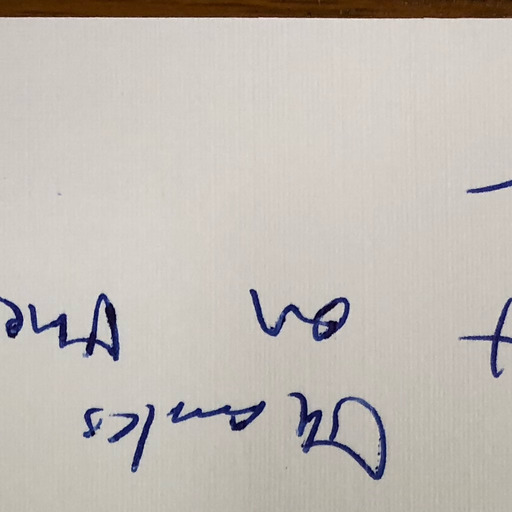 Thanks
on the